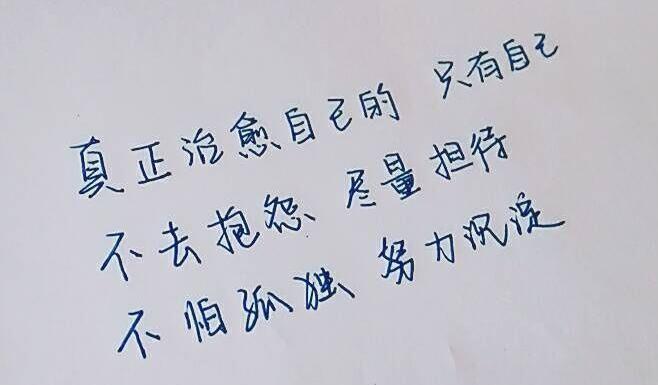 真正治愈自己的 只有自己
不去抱怨 尽量担待
不怕孤独 努力沉淀